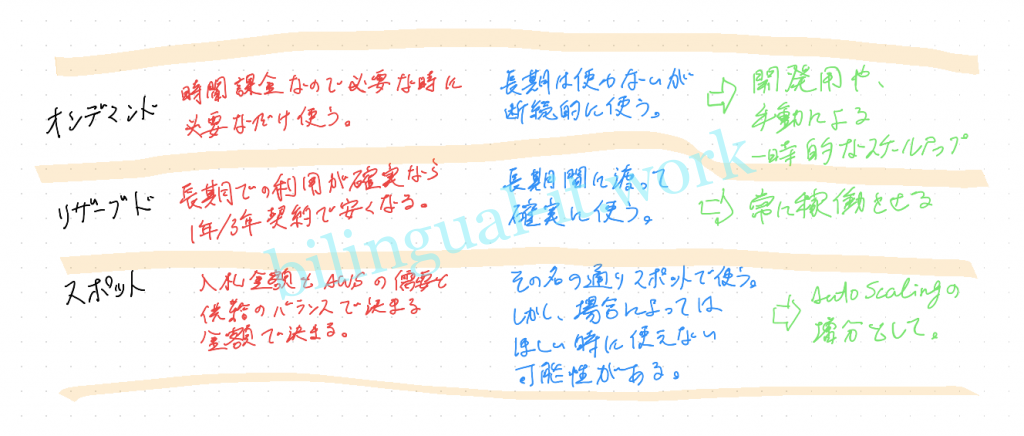 オンデマンド
時間課金なので必要な時に
必要なだけ使う。
長期は使わないが
断続的に使う。
⇨ 開発用や、
手動による
一時的なスケールアップ
リザーブド
長期での利用が確実なら
1年/3年契約で安くなる。
長期間に渡って
確実に使う。
⇨ 常に稼働させる
スポット
入札金額とAWSの需要と
供給のバランスで決まる
金額で決まる。
その名の通りスポットで使う。
しかし、場合によっては
ほしい時に使えない
可能性がある。
⇨ Auto Scalingの
増分として。
bilingual-it.work